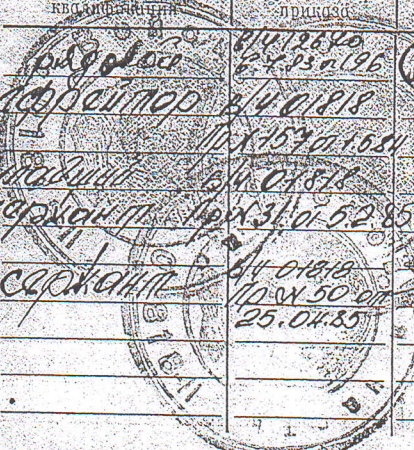 квалификации приказа
рядовой в/ч 12670
6.7.83 п 196
ефрейтор в/ч 01818
Пр № 157 от 1.6.84
младший в/ч 01818
сержант Пр № 31 от 5.2.85
сержант в/ч 01818
Пр № 50 от
25.04.85